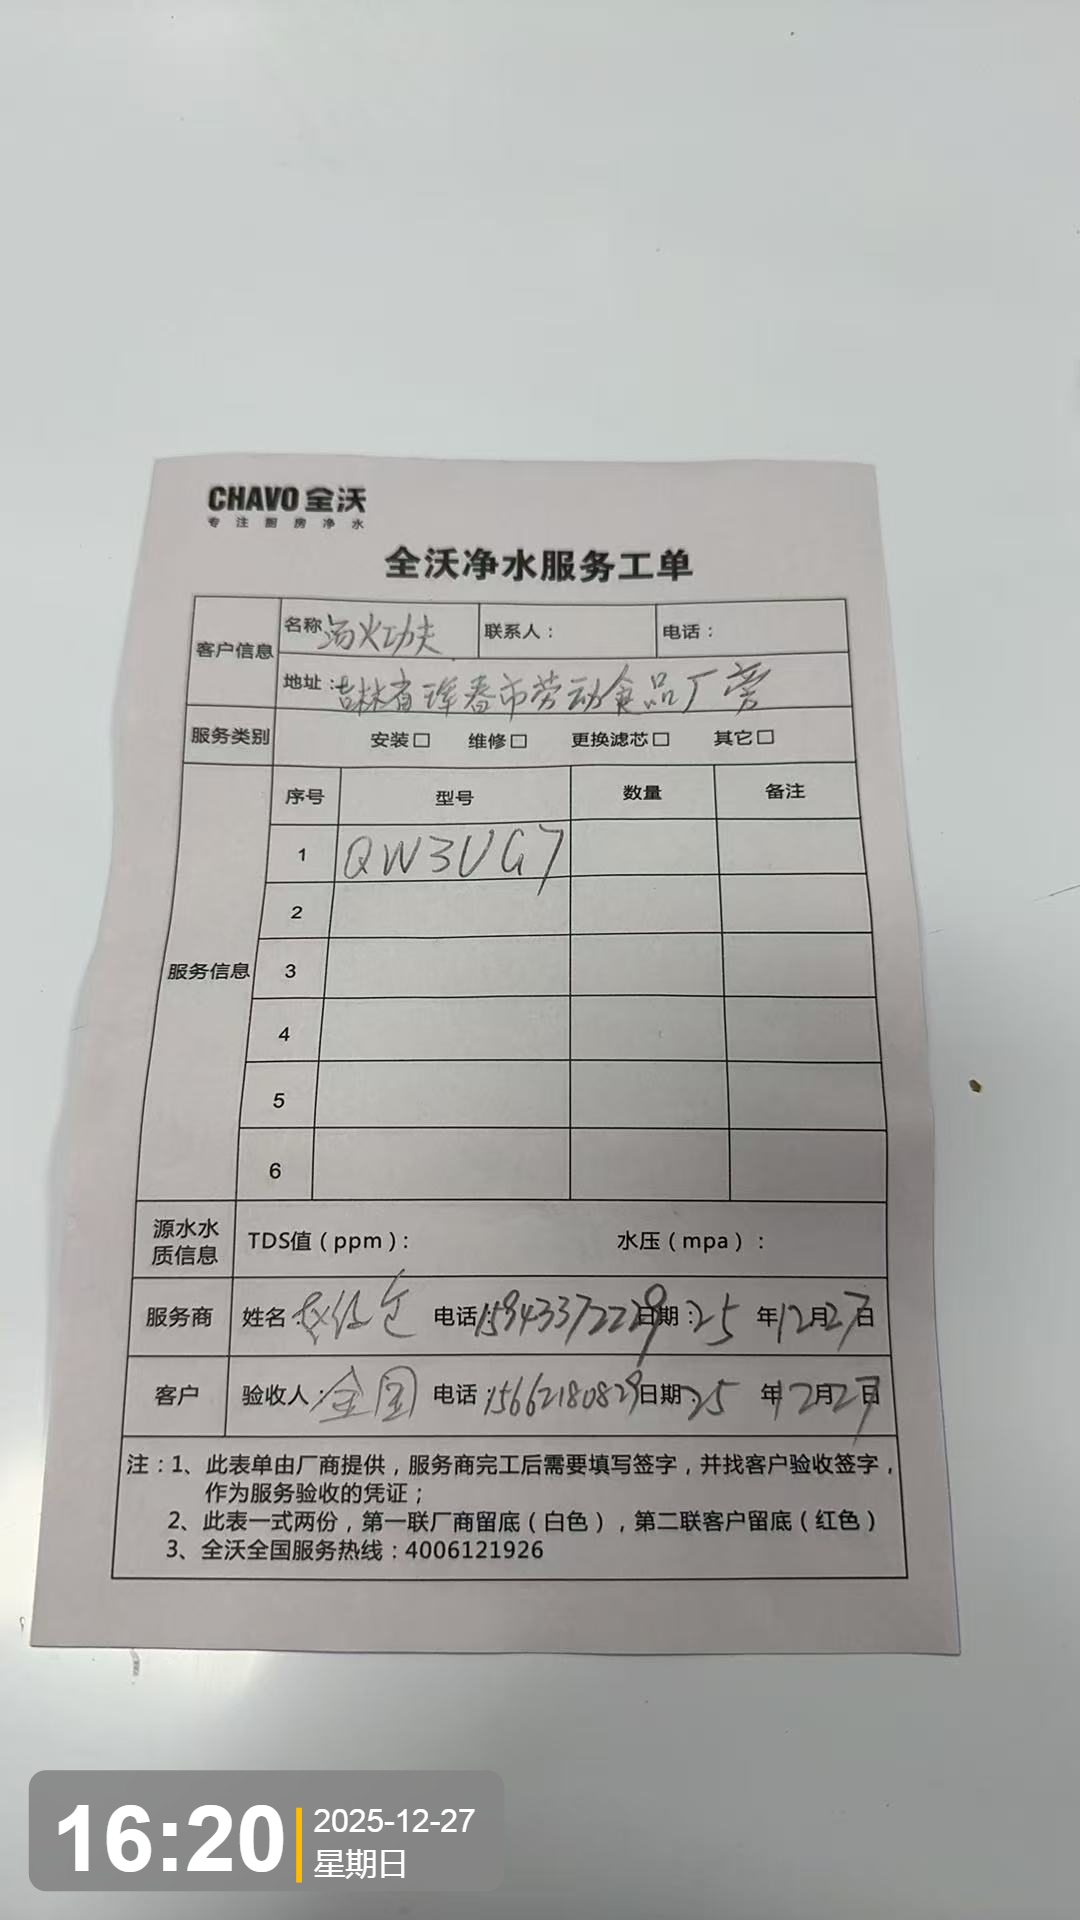 CHAVO 全沃
专注厨房净水
全沃净水服务工单
客户信息 名称 汤火功夫 联系人： 电话：
地址：吉林省珲春市劳动食品厂旁
服务类别 安装□ 维修□ 更换滤芯□ 其它□
服务信息 序号 型号 数量 备注
1 QW3UG7
2
3
4
5
6
源水水质信息 TDS值（ppm）： 水压（mpa）：
服务商 姓名： 电话：15943372229 日期：25 年12月27日
客户 验收人：金国 电话：15662180829 日期：25 年12月27日
注：1、此表单由厂商提供，服务商完工后需要填写签字，并找客户验收签字，
作为服务验收的凭证；
2、此表一式两份，第一联厂商留底（白色），第二联客户留底（红色）
3、全沃全国服务热线：4006121926
16:20 2025-12-27
星期日